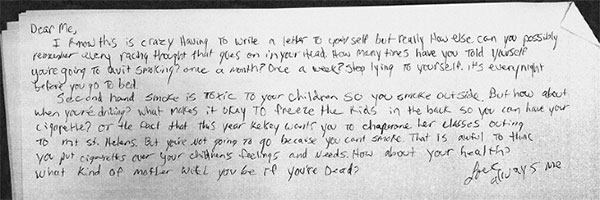 Dear Me,
I know this is crazy Having to write a letter to yourself but really How else can you possibly
remember every racing thought that goes on in your Head. How many times have you told yourself
you're going to quit smoking? once a month? Once a week? Stop lying to yourself. it's every night
before you go to bed.
Second hand smoke is TOXIC to your children so you smoke outside. But how about
when you're driving? What makes it okay to freeze the kids in the back so you can have your
cigarette? Or the fact that this year Kelsey wants you to chaperone her classes outing
to mt st. Helens. But you're not going to go because you cant smoke. That is awful to think
you put cigarettes over your childrens feelings and needs. How about your health?
What kind of mother will you be if you're Dead?
Love,
always me